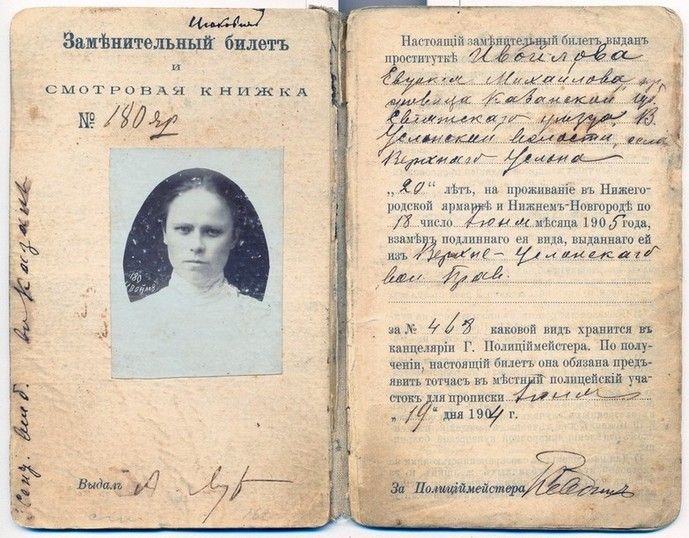 Замѣнительный билетъ
и
СМОТРОВАЯ КНИЖКА
№ 180 яр
180
Выдалъ А
Настоящій замѣнительный билетъ выданъ
проституткѣ Ивойлова
Евдокія Михайлова, кр
Казанской губ.
Свіяжскаго уѣзда, В.
Услонской волости, села
Верхняго Услона
„20“ лѣтъ, на проживаніе въ Нижего-
родской ярмаркѣ и Нижнемъ-Новгородѣ по
18 число Іюня мѣсяца 1905 года,
взамѣнъ подлиннаго ея вида, выданнаго ей
изъ Верхне-Услонскаго
вол Прав.
за № 468 каковой видъ хранится въ
канцеляріи Г. Полиціймейстера. По полу-
ченіи, настоящій билетъ она обязана предъ-
явить тотчасъ въ мѣстный полицейскій уча-
стокъ для прописки Іюня
„19“ дня 1904 г.
За Полиціймейстера